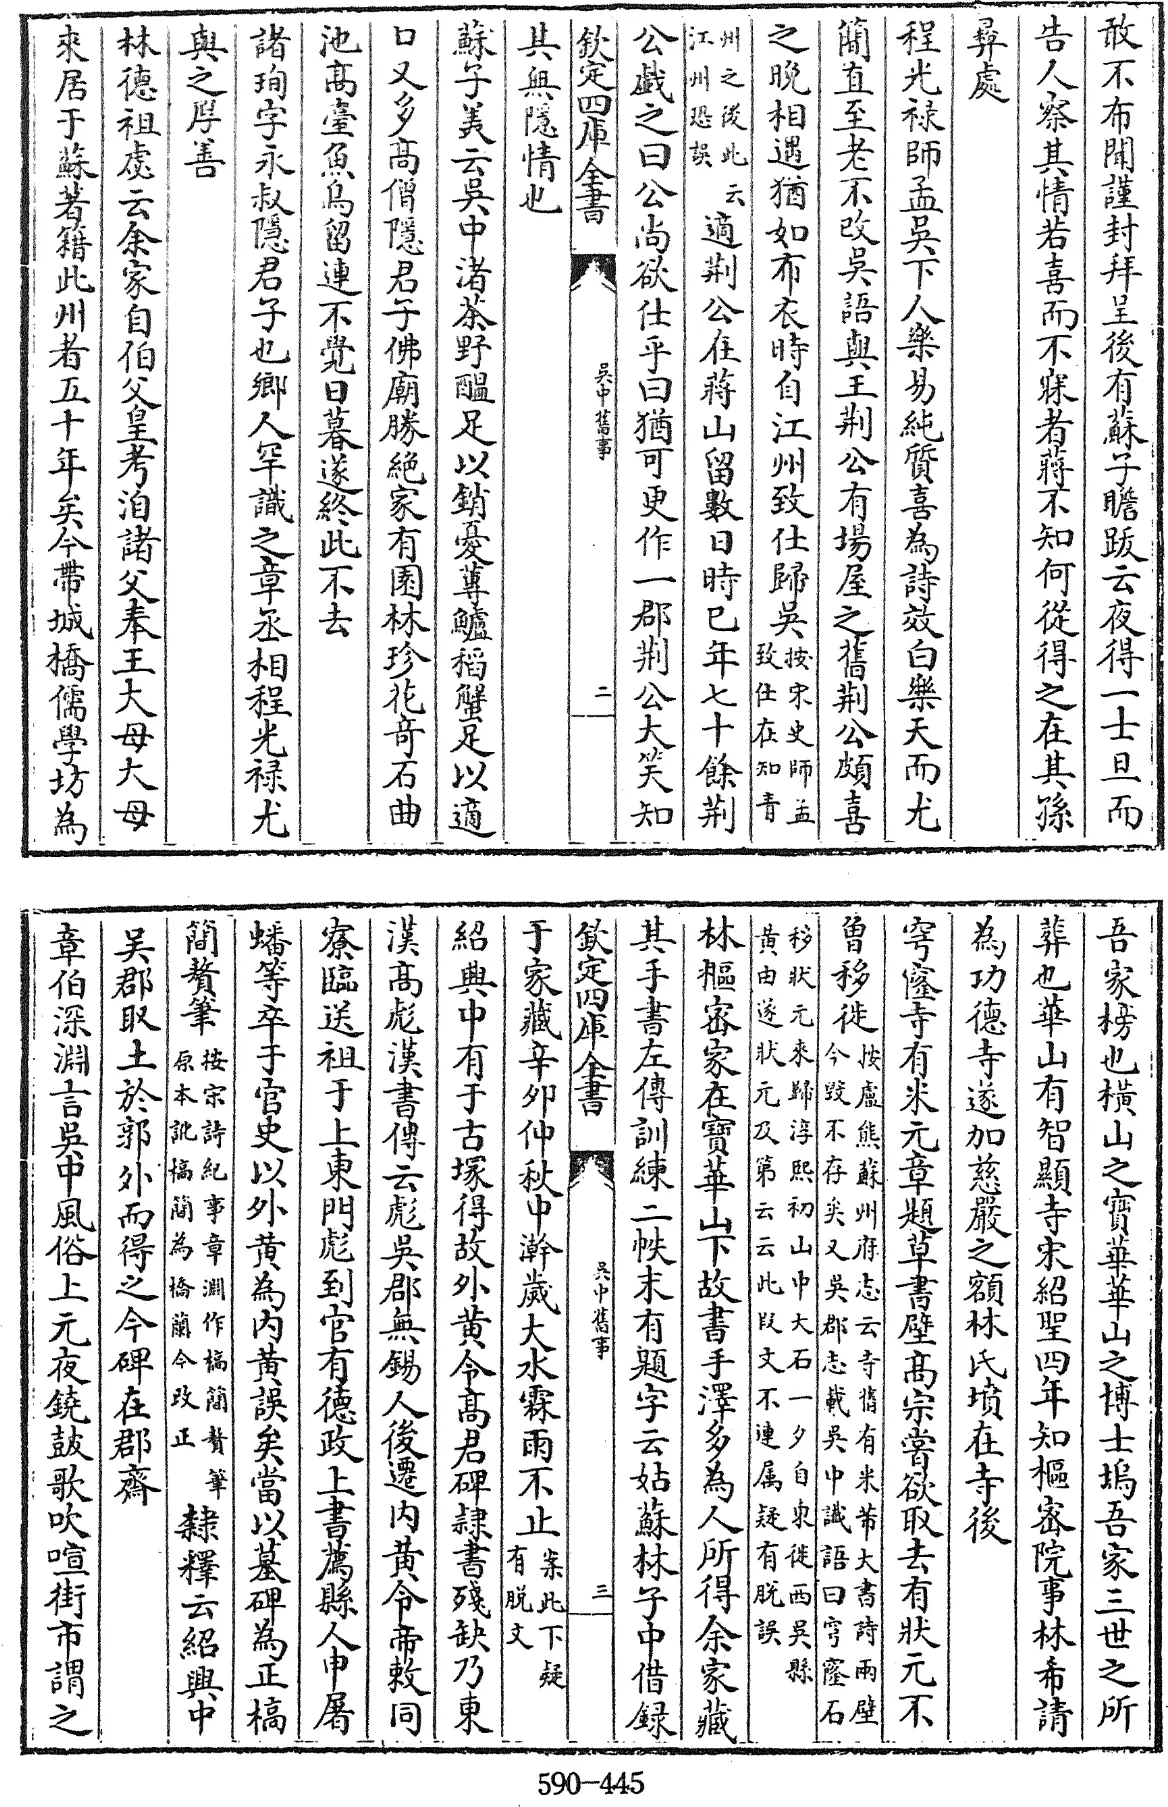 敢不布聞謹封拜呈後有蘇子瞻跋云夜得一士旦而
告人察其情若喜而不寐者蔣不知何從得之在其孫
彛處
程光禄師孟吳下人樂易純質喜為詩效白樂天而尤
簡直至老不改吳語與王荆公有場屋之舊荆公頗喜
之晚相遇猶如布衣時自江州致仕歸吳按宋史師孟致仕在知青
州之後此云江州恐誤適荆公在蔣山留數日時已年七十餘荆
公戯之曰公尚欲仕乎曰猶可更作一郡荆公大笑知
欽定四庫全書
吳中舊事
二
其無隱情也
蘇子美云吳中渚茶野醞足以銷憂蓴鱸稻蟹足以適
口又多髙僧隱君子佛廟勝絶家有園林珍花奇石曲
池髙臺魚鳥留連不覺日暮遂終此不去
諸珣字永叔隱君子也鄉人罕識之章丞相程光禄尤
與之厚善
林德祖虙云余家自伯父皇考洎諸父奉王大母大母
來居于蘇著籍此州者五十年矣今帶城橋儒學坊為
吾家榜也横山之寳華華山之博士塢吾家三世之所
葬也華山有智顯寺宋紹聖四年知樞密院事林希請
為功德寺遂加慈嚴之額林氏墳在寺後
穹窿寺有米元章題草書壁髙宗嘗欲取去有狀元不
曽移徙按盧熊蘇州府志云寺舊有米芾大書詩兩壁今毁不存矣又吳郡志載吳中讖語曰穹窿石
移狀元來歸淳熙初山中大石一夕自東徙西吳縣黄由遂狀元及第云云此段文不連属疑有脱誤
林樞密家在寳華山下故書手澤多為人所得余家藏
其手書左傳訓練二帙末有題字云姑蘇林子中借録
欽定四庫全書
吳中舊事
三
于家藏辛卯仲秋中澣歲大水霖雨不止案此下疑有脱文
紹興中有于古塚得故外黄令髙君碑隷書殘缺乃東
漢髙彪漢書傳云彪吳郡無錫人後遷内黄令帝敕同
寮臨送祖于上東門彪到官有德政上書薦縣人申屠
蟠等卒于官史以外黄為内黄誤矣當以墓碑為正槁
簡贅筆按宗詩紀事章淵作槁簡贅筆原本訛槁簡為橋蘭今改正隸釋云紹興中
吴郡取土於郭外而得之今碑在郡齋
章伯深淵言吳中風俗上元夜鐃鼓歌吹喧街市謂之
590-445